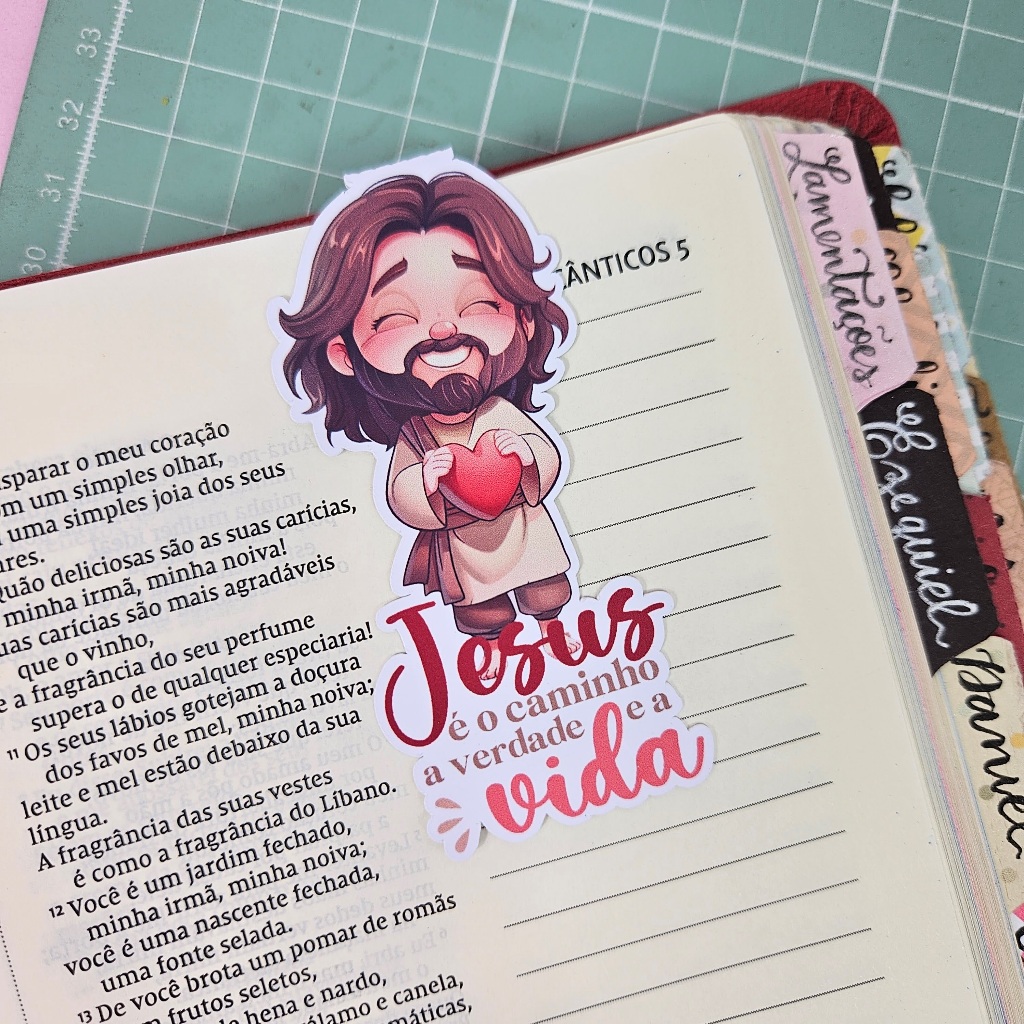 33
32
31
30
CÂNTICOS 5
meu coração
um simples olhar,
uma simples joia dos seus
deliciosas são as suas carícias,
minha irmã, minha noiva!
carícias são mais agradáveis
que o vinho,
e a fragrância do seu perfume
supera o de qualquer especiaria!
11 Os seus lábios gotejam a doçura
dos favos de mel, minha noiva;
leite e mel estão debaixo da sua
língua.
A fragrância das suas vestes
é como a fragrância do Líbano.
12 Você é um jardim fechado,
minha irmã, minha noiva;
você é uma nascente fechada,
uma fonte selada.
13 De você brota um pomar de romãs
frutos seletos,
de hena e nardo,
e canela,
Jesus
é o caminho
a verdade e a
vida
Lamentações
Ezequiel
Daniel